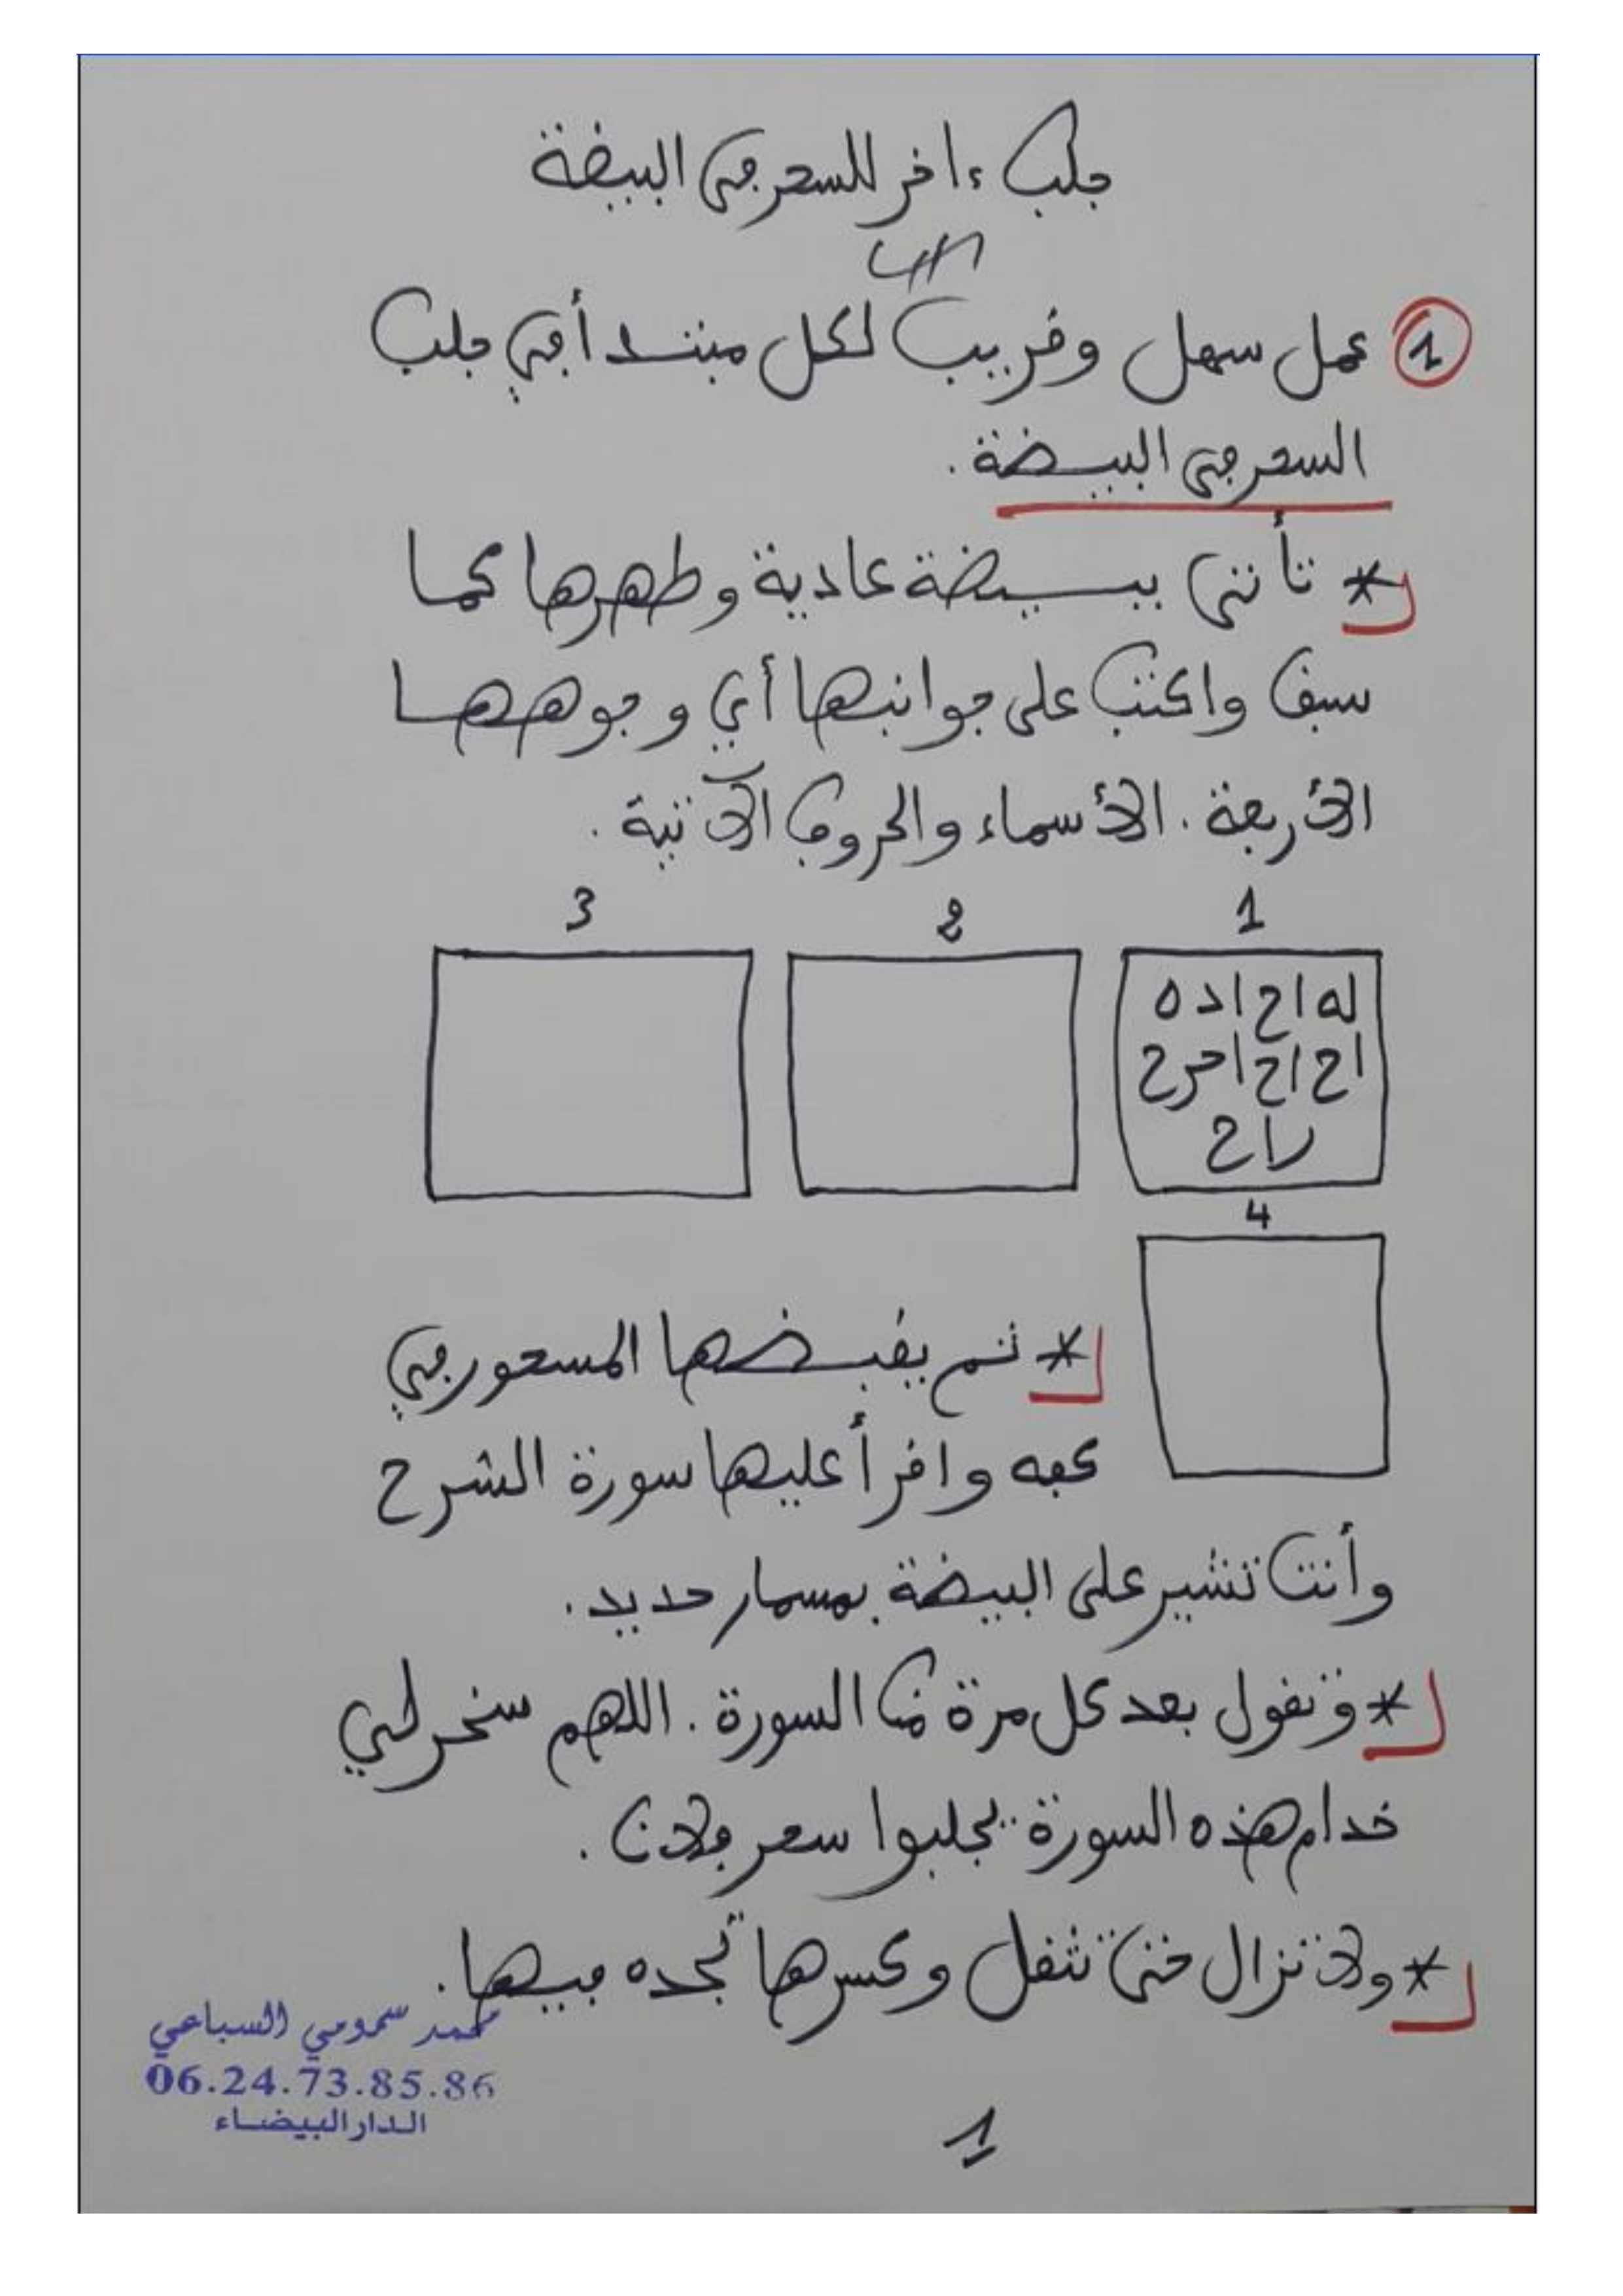 جلب ءاخر للسحر في البيضة
1 عمل سهل وقريب لكل مبتدأ في جلب
السحر في البيضة.
* تأتي ببيضة عادية وطهرها كما
سبق واكتب على جوانبها أي وجوهها
الأربعة. الأسماء والحروف الآتية.
1 2 3
له اح اد ه
اح اح احرح
راح
4
* تم يقبضها المسحور في
كفه واقرأ عليها سورة الشرح
وأنت تشير على البيضة بمسمار حديد.
* وتقول بعد كل مرة من السورة. اللهم سخر لي
خدام هذه السورة يجلبوا سحر فلان.
* ولا تزال حتى تثقل وكسرها تجده فيها.
محمد سمومي السباعي
06.24.73.85.86
الدار البيضاء
1